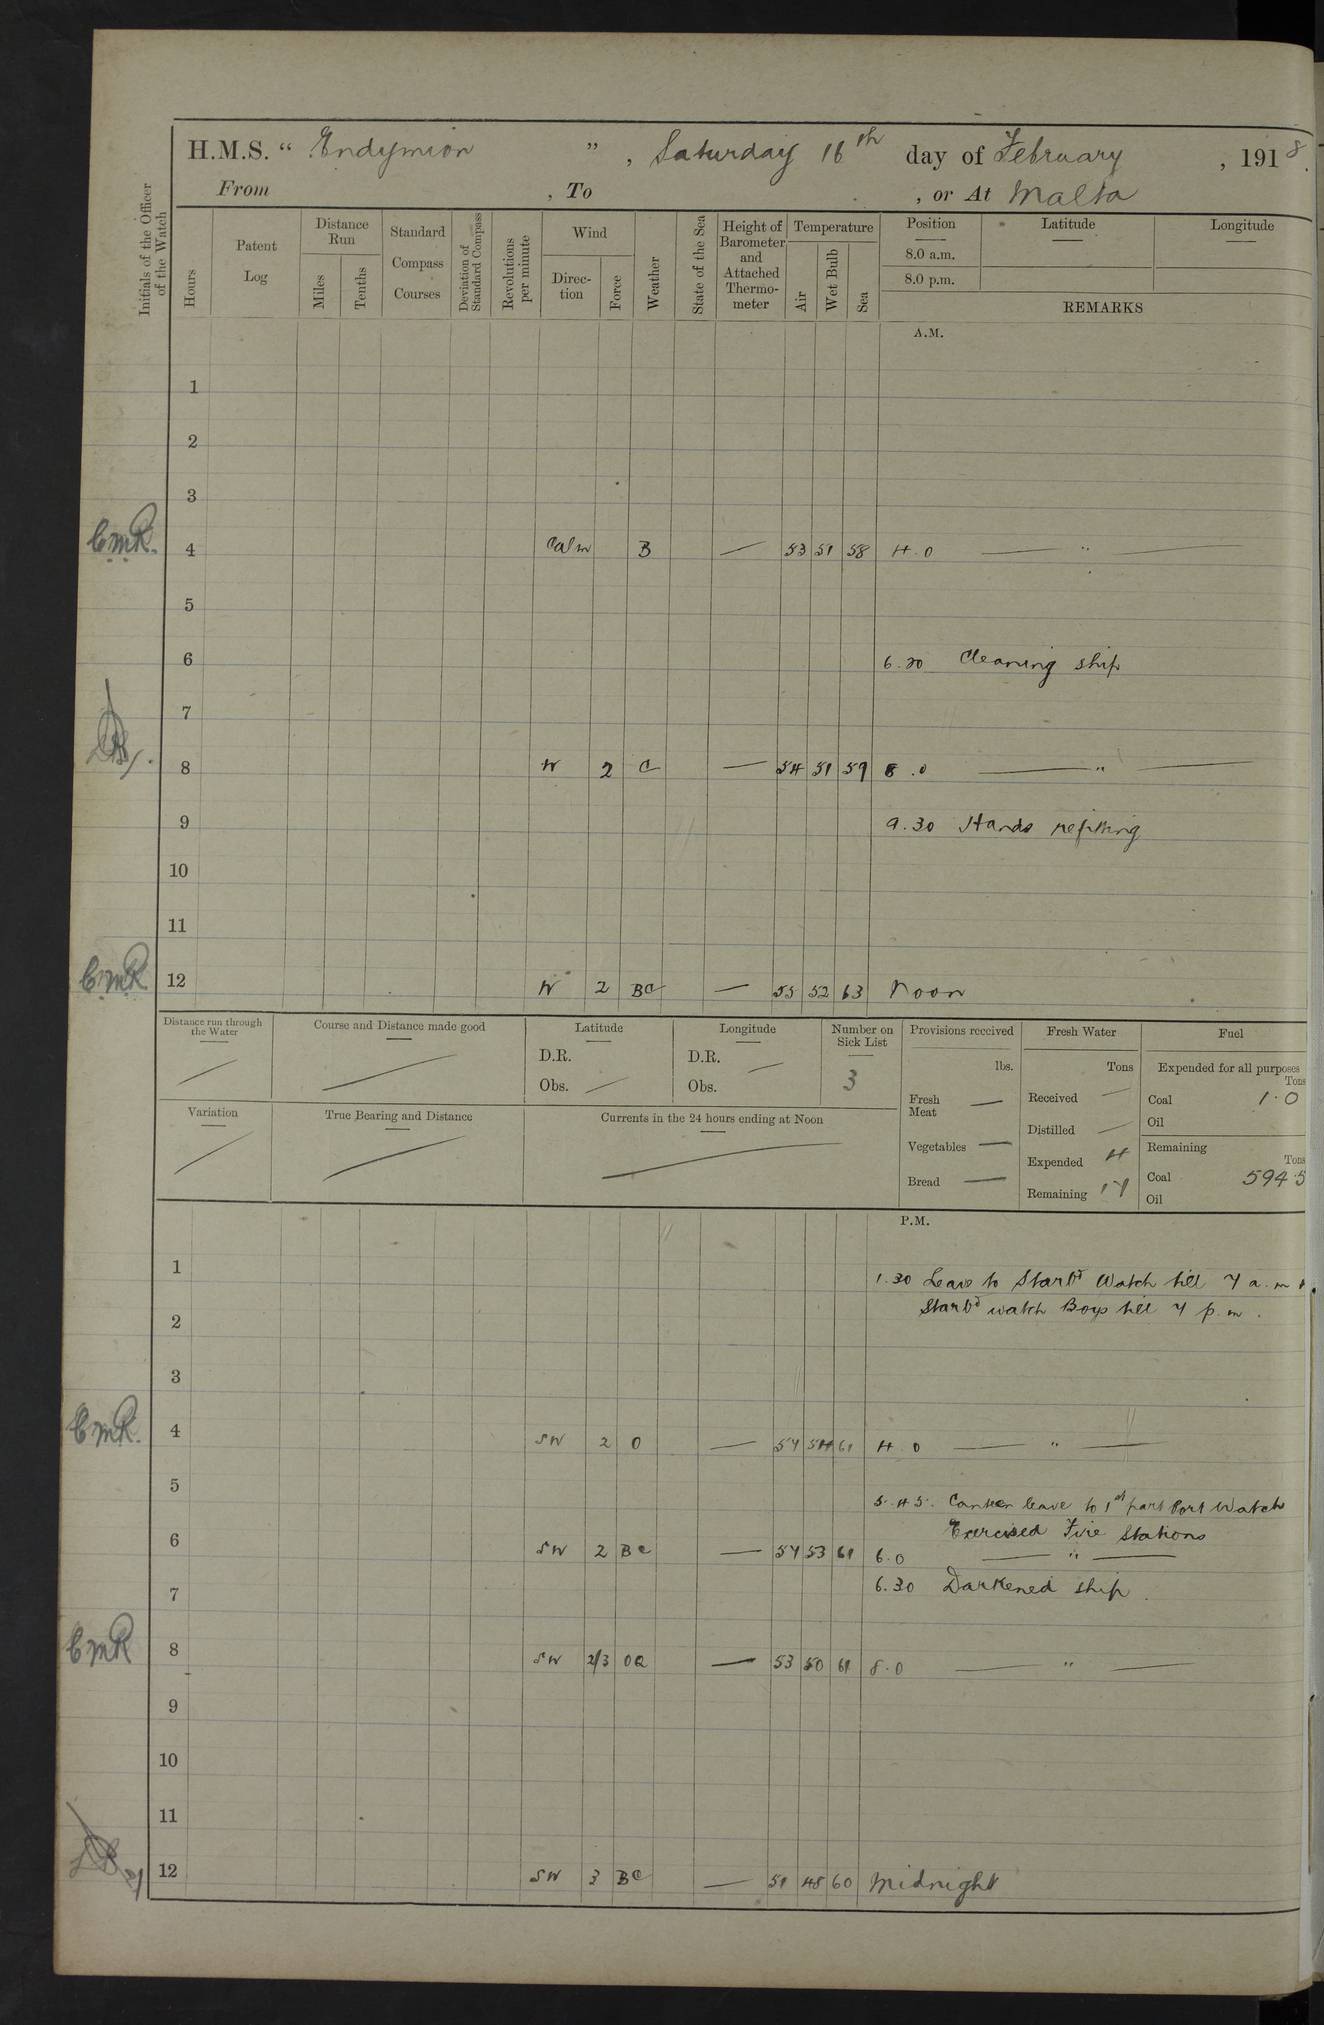 H.M.S. “ Endymion ” , Saturday 16th day of February , 1918.
From , To , or At Malta
Initials of the Officer of the Watch
Hours
Patent Log
Distance Run
Miles
Tenths
Standard Compass Courses
Deviation of Standard Compass
Revolutions per minute
Wind
Direc-tion
Force
Weather
State of the Sea
Height of Barometer and Attached Thermo-meter
Temperature
Air
Wet Bulb
Sea
Position
8.0 a.m.
8.0 p.m.
Latitude
Longitude
REMARKS
A.M.
1
2
3
CMR. 4 Calm B — 53 51 58 4.0 — " —
5
6 6.20 Cleaning ship
7
8 W 2 C — 54 51 59 8.0 — " —
9 9.30 Hands refitting
10
11
CMR 12 W 2 BC — 55 52 63 Noon
Distance run through the Water
Course and Distance made good
Latitude
D.R.
Obs.
Longitude
D.R.
Obs.
Number on Sick List
3
Variation
True Bearing and Distance
Currents in the 24 hours ending at Noon
Provisions received
lbs.
Fresh Meat —
Vegetables —
Bread —
Fresh Water
Tons
Received —
Distilled —
Expended 4
Remaining 17
Fuel
Expended for all purposes
Tons
Coal 1.0
Oil
Remaining
Tons
Coal 594.5
Oil
P.M.
1 1.30 Leave to Starbd Watch till 7 a.m
2 Starbd watch Boys till 7 p.m.
3
CMR. 4 SW 2 O — 57 54 61 4.0 — " —
5 5.45. Canteen leave to 1st part Port Watch
Exercised Fire Stations
6 SW 2 BC — 57 53 61 6.0 — " —
7 6.30 Darkened ship.
CMR 8 SW 2/3 OQ — 53 50 61 8.0 — " —
9
10
11
12 SW 3 BC — 51 48 60 Midnight